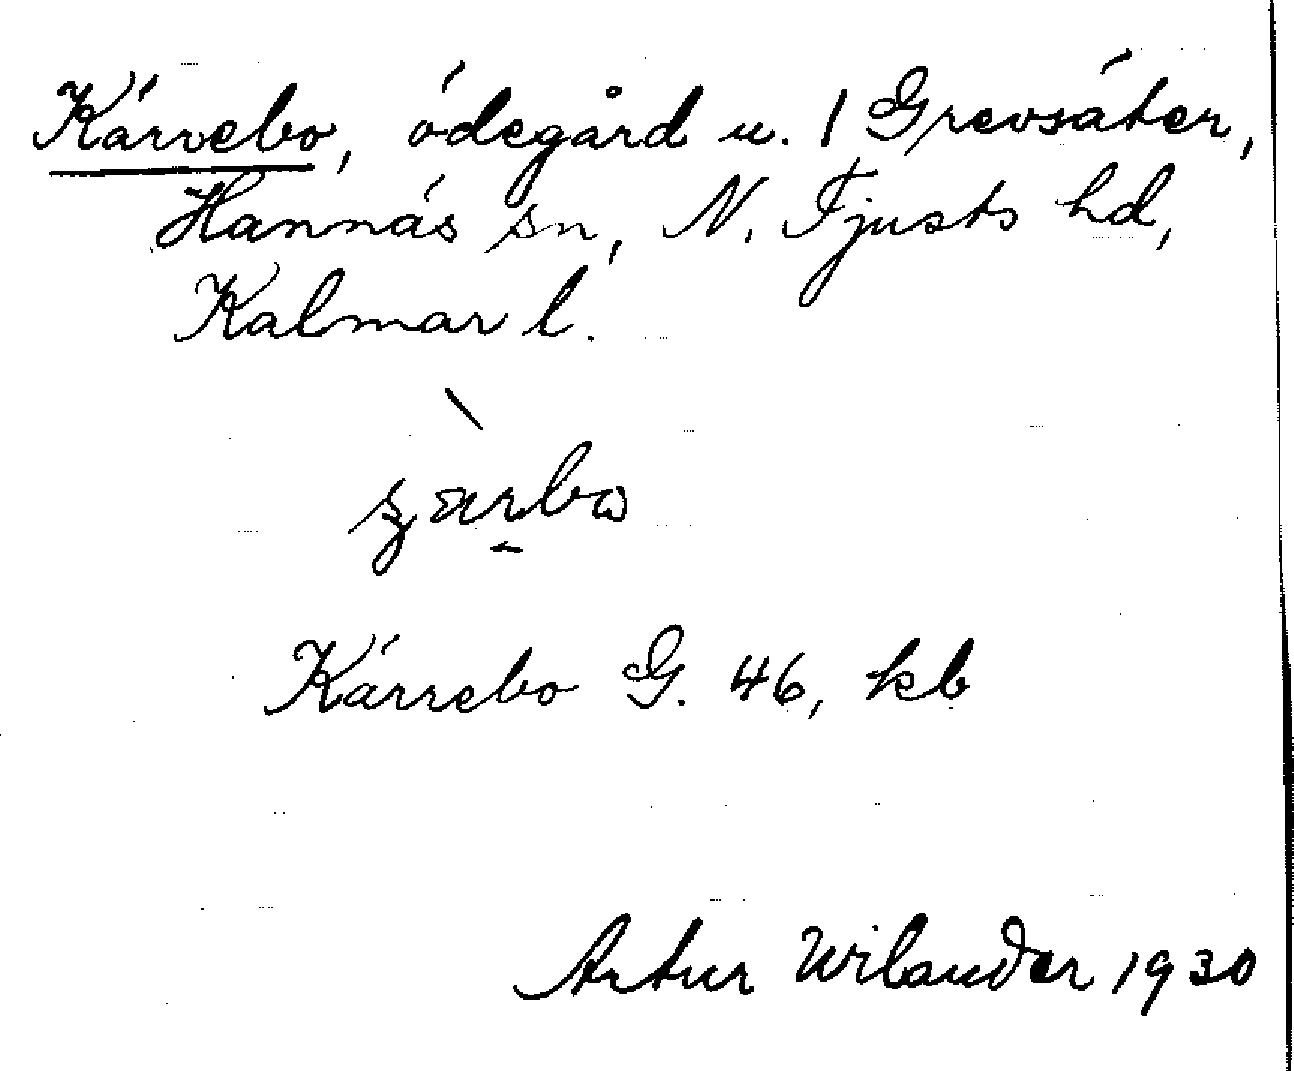 Kärvebo, ödegård u. 1 Grevsäter,
Hannäs sn, N. Tjusts hd,
Kalmar l.
Kärrebo G. 46, kb
Artur Wilander 1930